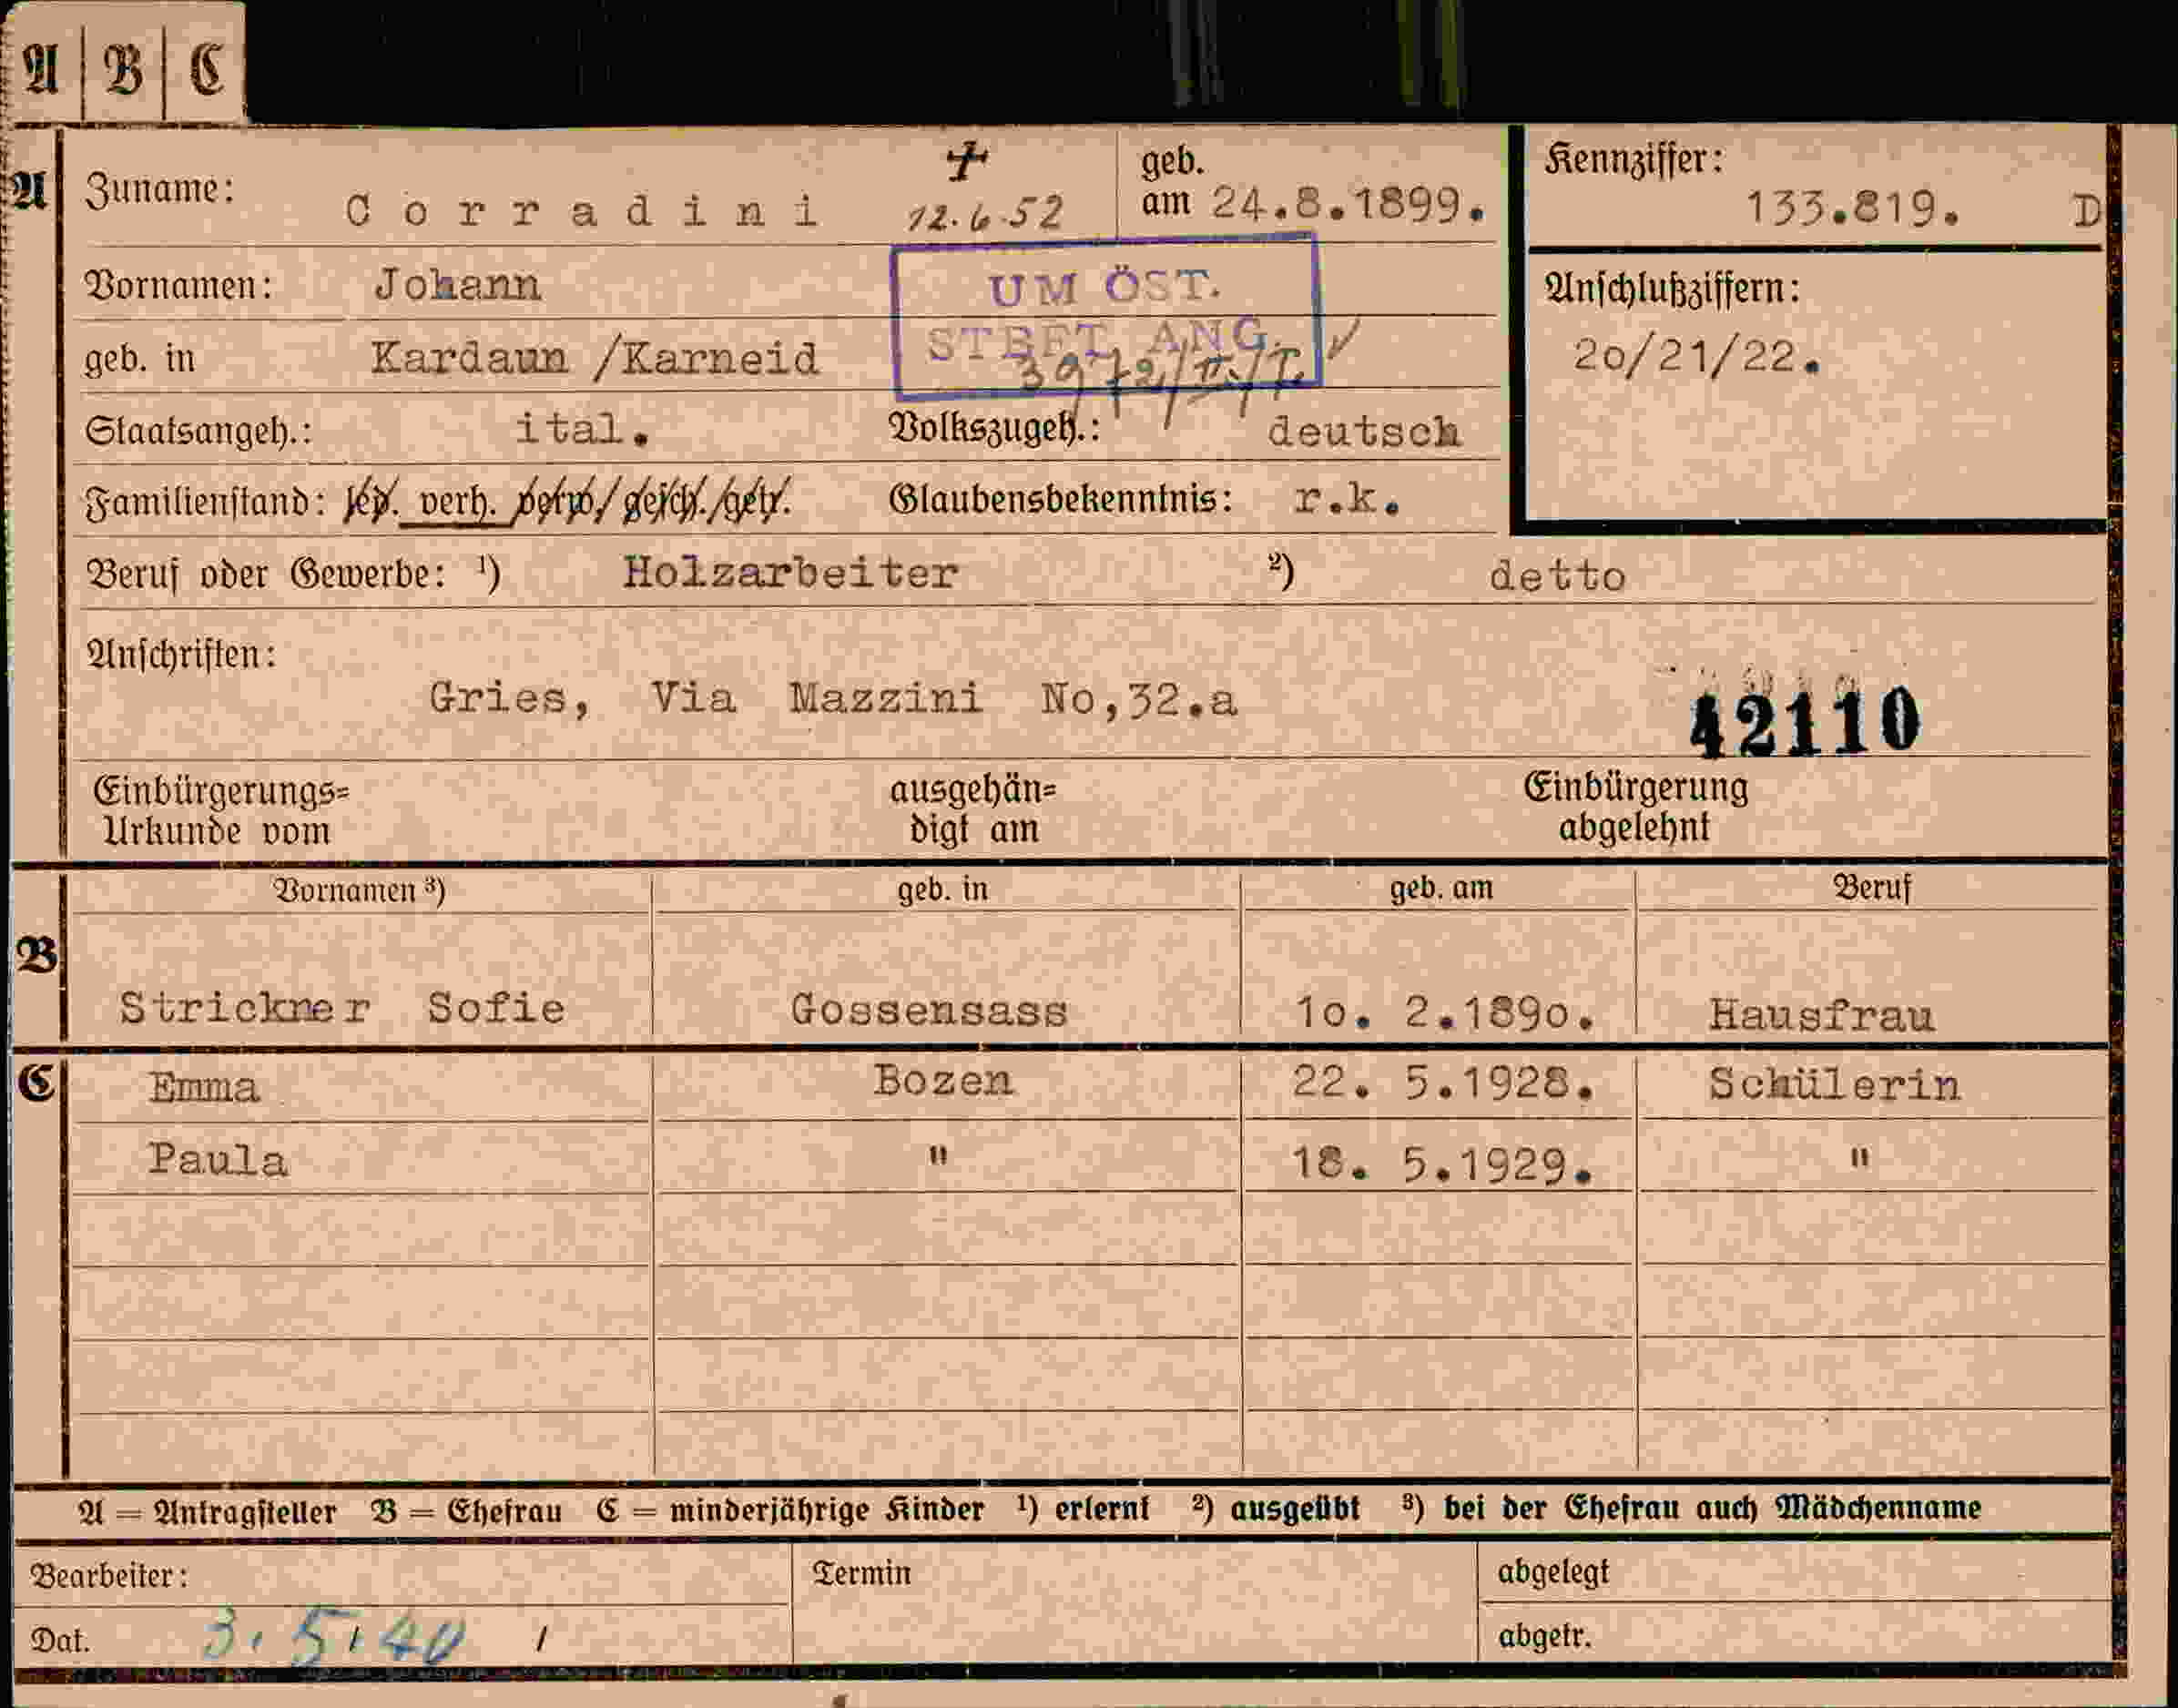 A | B | C
A Zuname: Corradini ✝ 12.6.52 geb. am 24.8.1899. Kennziffer: 133.819. D
Vornamen: Johann UM ÖST. Anschlußziffern:
geb. in Kardaun /Karneid STBFT ANG. 20/21/22.
Staatsangeh.: ital. Volkszugeh.: deutsch
Familienstand: led. verh. verw. gesch. getr. Glaubensbekenntnis: r.k.
Beruf oder Gewerbe: 1) Holzarbeiter 2) detto
Anschriften:
Gries, Via Mazzini No,32.a 42110
Einbürgerungs= ausgehän= Einbürgerung
Urkunde vom digt am abgelehnt
Vornamen 3) geb. in geb. am Beruf
B Strickner Sofie Gossensass 10. 2.1890. Hausfrau
C Emma Bozen 22. 5.1928. Schülerin
Paula " 18. 5.1929. "
A = Antragsteller B = Ehefrau C = minderjährige Kinder 1) erlernt 2) ausgeübt 3) bei der Ehefrau auch Mädchenname
Bearbeiter: Termin abgelegt
Dat. 3.5.40 / abgetr.